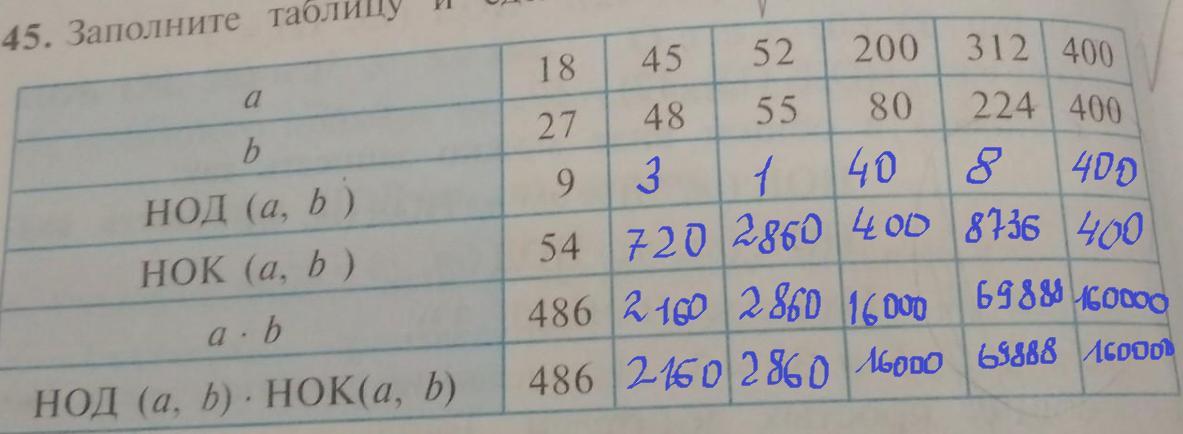 45. Заполните таблицу и
a 18 45 52 200 312 400
b 27 48 55 80 224 400
НОД (a, b) 9 3 1 40 8 400
НОК (a, b) 54 720 2860 400 8736 400
a · b 486 2160 2860 16000 69888 160000
НОД (a, b) · НОК(a, b) 486 2160 2860 16000 69888 160000